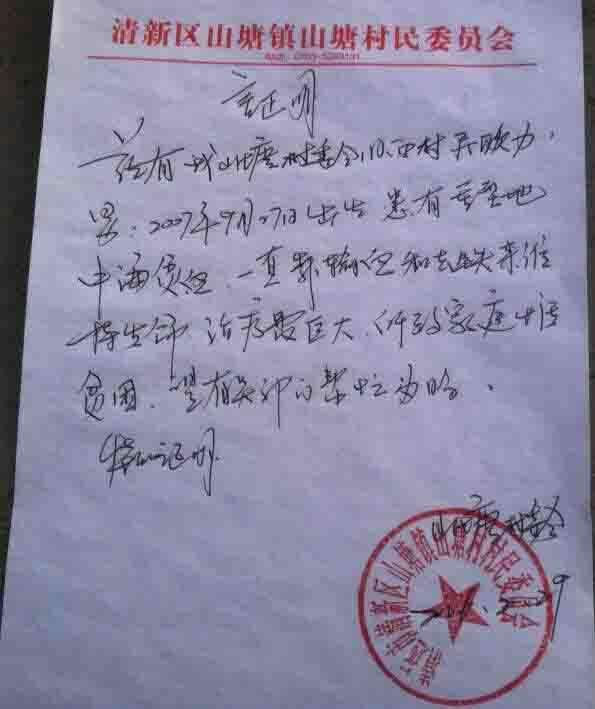 清新区山塘镇山塘村民委员会
证明
兹有我山塘村委会 西村 欧力
男，2007年9月27日出生 患有重型地
中海贫血，一直靠输血和去铁来维
持生命，治疗费巨大，所致家庭
贫困，望有关部门帮忙为盼。
特此证明
山塘村委会
清远市清新区山塘镇山塘村村民委员会